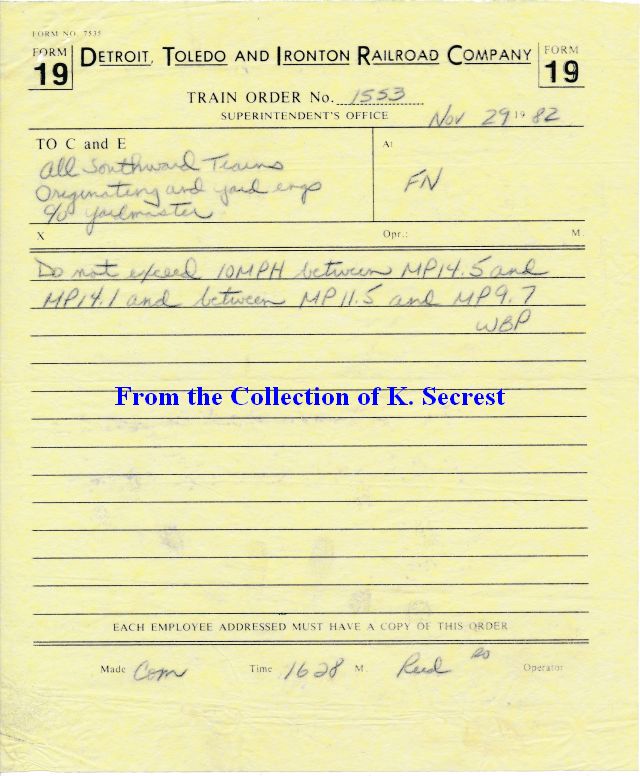 FORM NO. 7535
FORM 19 DETROIT, TOLEDO AND IRONTON RAILROAD COMPANY FORM 19
TRAIN ORDER No. 1553
SUPERINTENDENT'S OFFICE Nov 29 19 82
TO C and E At
All Southward Trains
Originating and yard engs FN
c/o yardmaster
X Opr.: M.
Do not exceed 10MPH between MP14.5 and
MP14.1 and between MP11.5 and MP9.7
WBP
From the Collection of K. Secrest
EACH EMPLOYEE ADDRESSED MUST HAVE A COPY OF THIS ORDER
Made Com Time 1628 M Reid Operator